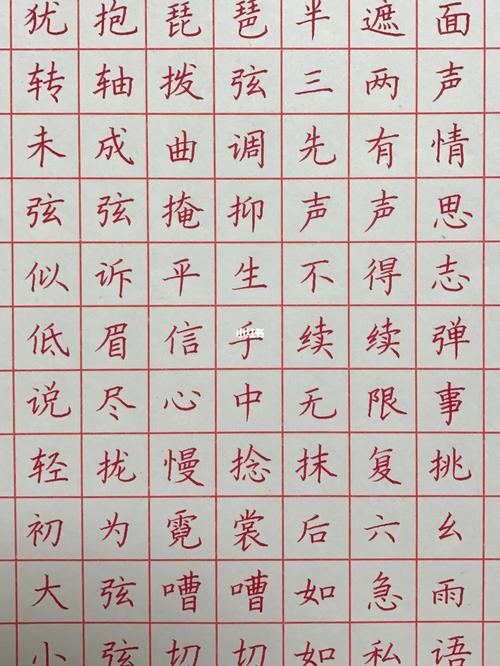 犹抱琵琶半遮面
转轴拨弦三两声
未成曲调先有情
弦弦掩抑声声思
似诉平生不得志
低眉信手续续弹
小红书
说尽心中无限事
轻拢慢捻抹复挑
初为霓裳后六幺
大弦嘈嘈如急雨
小弦切切如私语